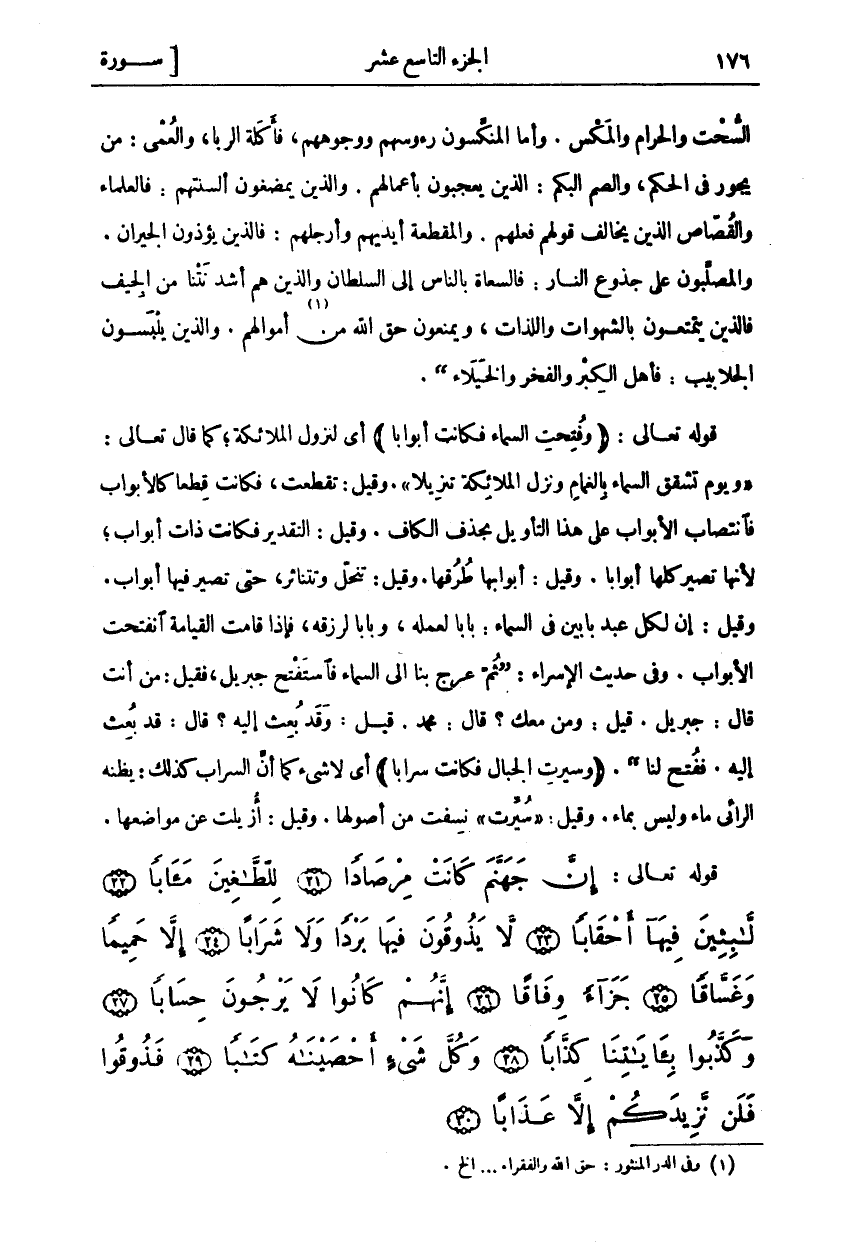 ١٧٦ الجزء التاسع عشر [ ســورة
السُّحْت والحرام والمَكْس . وأما المنكَّسون رءوسهم ووجوههم، فأَكَلة الربا، والعُمْى : من
يجور فى الحكم، والصم البكم : الذين يعجبون بأعمالهم . والذين يمضغون ألسنتهم : فالعلماء
والقُصّاص الذين يخالف قولهم فعلهم . والمقطعة أيديهم وأرجلهم : فالذين يؤذون الجيران .
والمصلَّبون على جذوع النــار : فالسعاة بالناس إلى السلطان والذين هم أشد نَتْنا من الجيف
فالذين يتمتعــون بالشهوات واللذات ، ويمنعون حق الله من (١) أموالهم . والذين يلْبَســون
الجلابيب : فأهل الكِبْر والفخر والخُيَلَاء “ .
قوله تعــالى : ﴿ وفُتِحتِ السماء فكانت أبوابا ﴾ أى لنزول الملائكة ؛ كما قال تعــالى :
«ويوم تشقق السماء بِالغمامِ ونزل الملائِكة تنزِيلا» . وقيل : تقطعت ، فكانت قِطعا كالأبواب
فآنتصاب الأبواب على هذا التأويل بحذف الكاف . وقيل : التقدير فكانت ذات أبواب ؛
لأنها تصير كلها أبوابا . وقيل : أبوابها طُرُقها . وقيل : تنحلّ وتتناثر، حتى تصير فيها أبواب .
وقيل : إن لكل عبد بابين فى السماء : بابا لعمله ، وبابا لرزقه ، فإذا قامت القيامة آنفتحت
الأبواب . وفى حديث الإسراء : ”ثُمّ عرج بنا الى السماء فآستَفْتح جبريل ، فقيل : من أنت
قال : جبريل . قيل : ومن معك ؟ قال : محمد . قيــل : وَقَد بُعث إليه ؟ قال : قد بُعث
إليه . ففُتح لنا “ . ﴿ وسيرتِ الجبال فكانت سرابا ﴾ أى لا شىء كما أنّ السراب كذلك : يظنه
الرائى ماء وليس بماء . وقيل : «سُيِّرت» نسفت من أصولها . وقيل : أُزيلت عن مواضعها .
قوله تعــالى : إِنَّ جَهَنَّمَ كَانَتْ مِرْصَادًا ﴿٢١﴾ لِلطَّـٰغِينَ مَـَٔابًا ﴿٢٢﴾
لَّـٰبِثِينَ فِيهَآ أَحْقَابًا ﴿٢٣﴾ لَّا يَذُوقُونَ فِيهَا بَرْدًا وَلَا شَرَابًا ﴿٢٤﴾ إِلَّا حَمِيمًا
وَغَسَّاقًا ﴿٢٥﴾ جَزَآءً وِفَاقًا ﴿٢٦﴾ إِنَّهُمْ كَانُوا لَا يَرْجُونَ حِسَابًا ﴿٢٧﴾
وَكَذَّبُوا بِـَٔايَـٰتِنَا كِذَّابًا ﴿٢٨﴾ وَكُلَّ شَىْءٍ أَحْصَيْنَـٰهُ كِتَـٰبًا ﴿٢٩﴾ فَذُوقُوا
فَلَن نَّزِيدَكُمْ إِلَّا عَذَابًا ﴿٣٠﴾
(١) وفى الدر المنثور : حق الله والفقراء ... الخ .